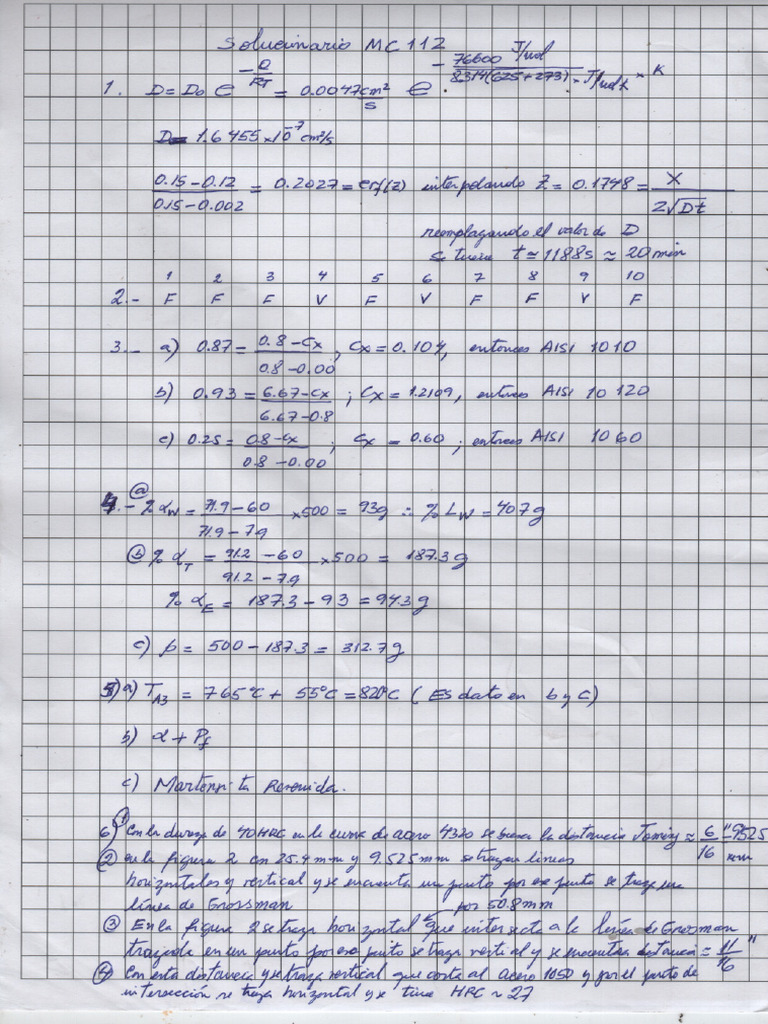 Solucionario MC 112
1. D = Do e^(-Q/RT) = 0.0047 cm²/s e^(- 76600 J/mol / 8.314(625+273) J/molK × K)
D = 1.6455 x 10^-7 cm²/s
(0.15 - 0.12)/(0.15 - 0.002) = 0.2027 = erf(z) interpolando Z = 0.1748 = X/(2√Dt)
reemplazando el valor de D
se tiene t ≃ 1188s ≈ 20 min
1 2 3 4 5 6 7 8 9 10
2.- F F F V F V F F V F
3.- a) 0.87 = (0.8 - Cx)/(0.8 - 0.00), Cx = 0.104, entonces AISI 1010
b) 0.93 = (6.67 - Cx)/(6.67 - 0.8) ; Cx = 1.2109, entonces AISI 10120
c) 0.25 = (0.8 - Cx)/(0.8 - 0.00) ; Cx = 0.60 ; entonces AISI 1060
4.- (a) % αW = (71.9 - 60)/(71.9 - 79) x500 = 93g ∴ % LW = 407g
(b) % αT = (91.2 - 60)/(91.2 - 7.9) x500 = 187.3g
% αE = 187.3 - 93 = 94.3g
c) β = 500 - 187.3 = 312.7g
5) a) TA3 = 765°C + 55°C = 820°C (Es dato en b y c)
b) α + Pf
c) Martensita Revenida.
6) (1) Con la dureza de 40HRC en la curva de acero 4320 se tiene la distancia Jominy ≈ 6/16" 9.525 mm
(2) en la figura 2 con 25.4 mm y 9.525 mm se trazan líneas
horizontales y vertical y se encuentra un punto por ese punto se traza una
línea de Grossman
por 50.8mm
(3) En la figura 2 se traza horizontal que intersecta a la línea de Grosman
trazada en un punto por ese punto se traza vertical y se encuentra distancia = 11/16"
(4) Con esta distancia y se traza vertical que corta al acero 1050 y por el punto de
intersección se traza horizontal y se tiene HRC ~ 27